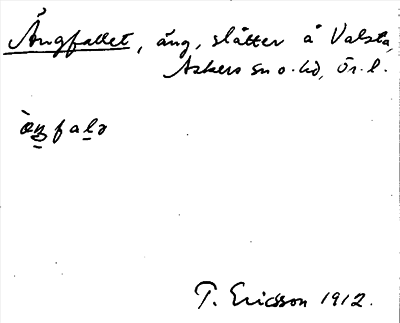 Ängfallet, äng, slåtter å Valsta,
Askers sn o. hd, Ör. l.
T. Ericsson 1912.